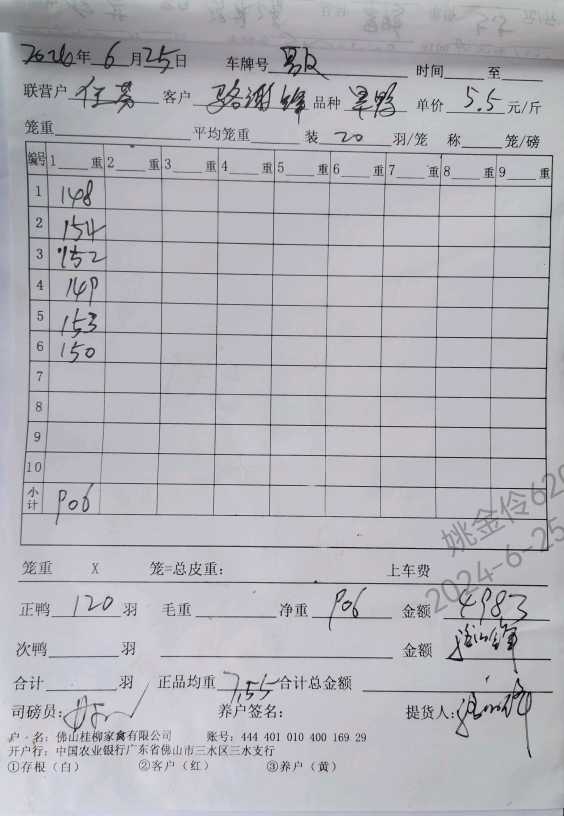 2024年 6月25日 车牌号 时间 至
联营户 任 客户 骆谢锋 品种 旱鸭 单价 5.5 元/斤
笼重 平均笼重 装 20 羽/笼 称 笼/磅
编号 1 重 2 重 3 重 4 重 5 重 6 重 7 重 8 重 9 重
1 148
2 154
3 152
4 149
5 153
6 150
7
8
9
10
小计 906
笼重 X 笼=总皮重: 上车费
正鸭 120 羽 毛重 净重 906 金额 4983
次鸭 羽 金额
合计 羽 正品均重 7.55 合计总金额
司磅员: 养户签名: 提货人:
户 名: 佛山桂柳家禽有限公司 账号: 444 401 010 400 169 29
开户行: 中国农业银行广东省佛山市三水区三水支行
①存根（白） ②客户（红） ③养户（黄）
姚金伶620
2024-6-25